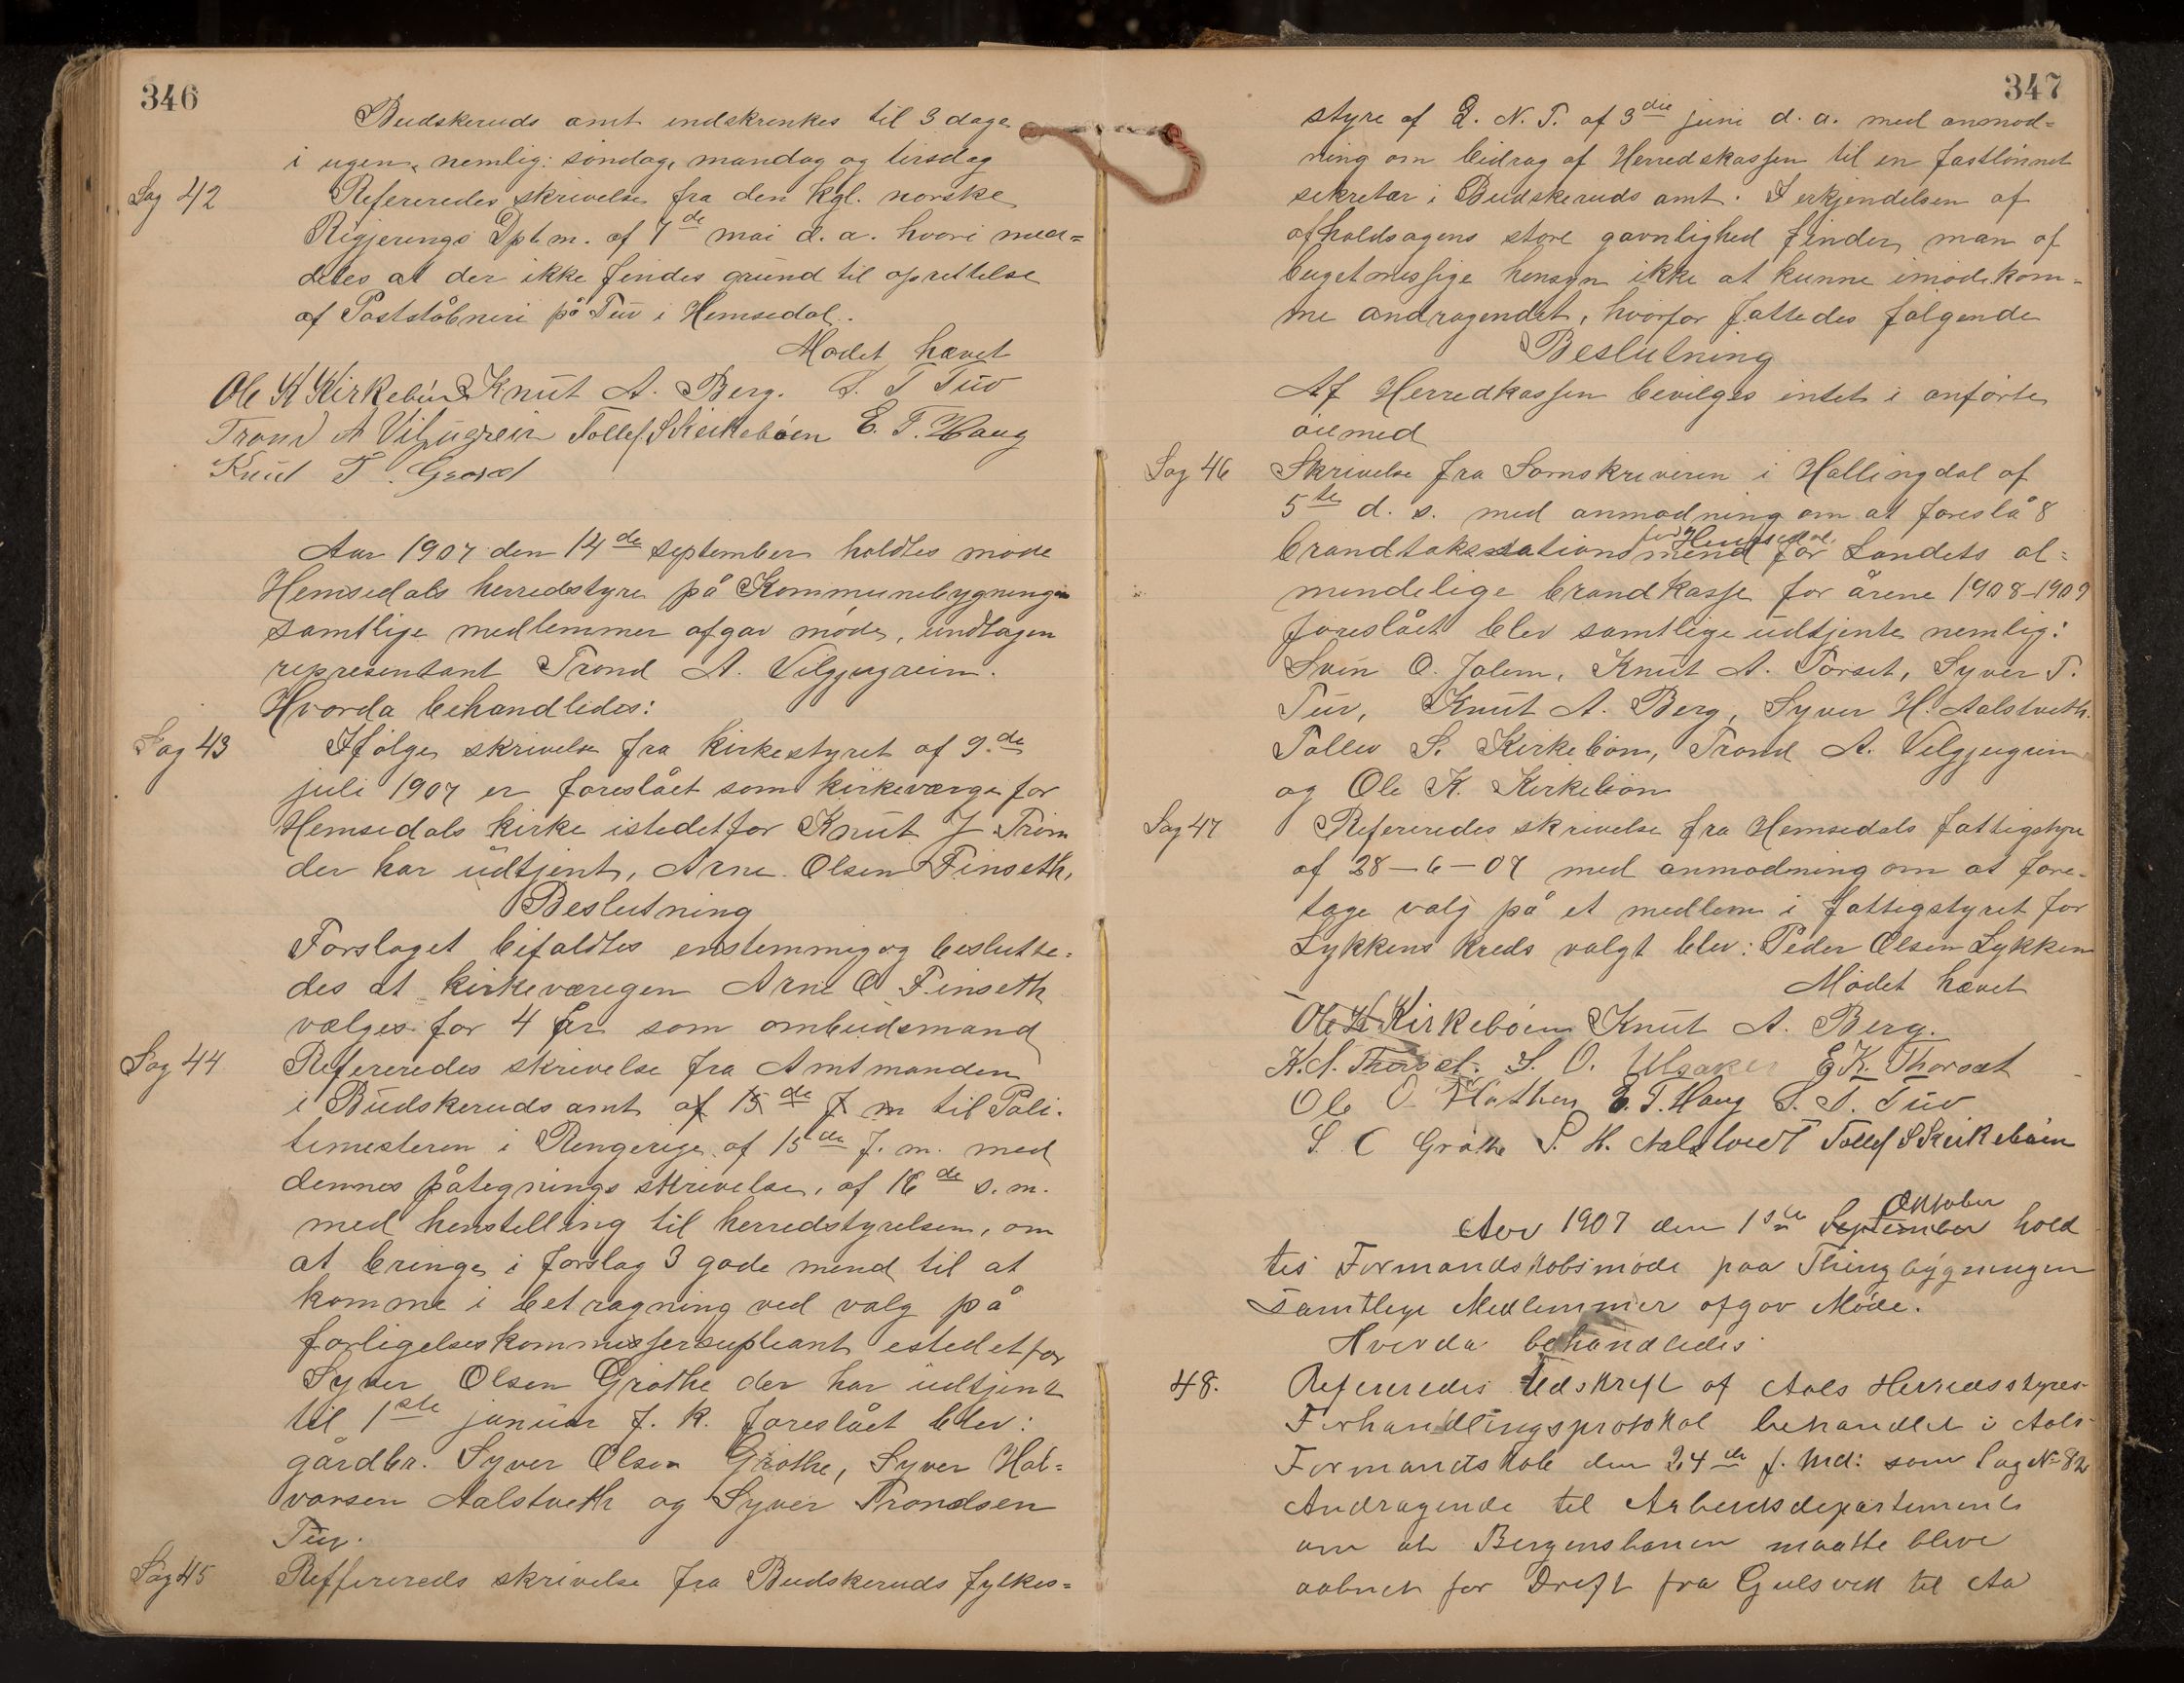 346
Budskeruds amt indskrenkes til 3 dage
i ugen, nemlig: söndag, mandag og tirsdag
Sag 42 Refereredes skrivelse fra den kgl. norske
Rigjerings Dptm. af 7de mai d. a. hvori med=
deles at der ikke findes grund til oprettelse
af Poståbneri på Tuv i Hemsedal.
Mödet hævet
Ole K Kirkeböen Knut A. Berg. S. T Tuv
Trond A Tollef S Kirkeböen E. T. Haug
Knut T.
Aar 1907 den 14de september holdtes möde
Hemsedals herredstyre på Kommunebygningen
Samtlige medlemmer afgav möde, undtagen
representant Trond A. Vilgjugreim.
Hvorda behandledes:
Sag 43 Ifölge skrivelse fra kirkestyret af 9.de
juli 1907 er foreslået som kirkeværge for
Hemsedals kirke istedetfor Knut J Tröim
der har udtjent, Arne Olsen Finseth,
Beslutning
Forslaget bifaldtes enstemmig og beslutte=
des at kirkeværegen Arne O Finseth
vælges for 4 år som ombudsmand
Sag 44 Refereredes skrivelse fra Amtmanden
i Budskeruds amt af 15de f m til Poli.
timesteren i Rengerige af 15de f. m. med
dennes påtegnings skrivelse, af 16de s. m.
med henstelling til herredstyrelsen, om
at bringe i forslag 3 gode mend til at
komme i betragning ved valg på
forligelseskommissersupleant estedetfor
Syver Olsen Gröthe der har udtjent
til 1ste januar f. k. foreslået blev:
gårdbr. Syver Olsen Gröthe, Syver Hal=
vorsen Aalstveth og Syver Trondsen
Tuv.
Sag 45 Refferereds skrivelse fra Budskeruds fylkes=
347
styre af D. N. T. af 3die juni d. a. med anmod=
ning om bidrag af Herredskassen til en fastlönnet
sekretær i Budskeruds amt. I erkjendelsen af
afholdsagens store gavnlighed finder man af
bugetmessige hensyn ikke at kunne imödekom=
me andragendet, hvorfor fattedes fölgende
Beslutning
Af Herredkassen bevilges intet i anförte
öiemed
Sag 46 Skrivelse fra Sornskriveren i Hallingdal af
5te d. s. med anmodning om at foreslå 8
for Hemsedal
brandtakssationsmend for Landets al=
mindelige brandkasse for årene 1908-1909
foreslået blev samtlige udtjente nemlig:
Svein O. Jolem, Knut A. Torset, Syver T.
Tuv, Knut A. Berg, Syver H. Aalstveth.
Tollev S. Kirkeböen, Trond A. Vilgjugreim
og Ole K. Kirkeböen
Sag 47 Refereredes skrivelse fra Hemsedals fattigstyre
af 28-6-07 med anmodning om at fore-
tage valg på et medlem i fattigstyret for
Lykkens kreds valgt blev: Peder Olsen Lykken
Mödet hævet
Ole K Kirkeböen Knut A. Berg.
K. A. Thorset. S. O. Ulsaker E. K. Thorset
Ole O. E. T. Haug S. T. Tuv
S. O Gröthe S. H. Aalstvedt Tollef S Kirkeböen
Aar 1907 den 1ste September Oktober hold
tes Formandskabsmöde paa Thingbygningen
Samtlege Medlemmer afgav Möde.
Hvorda behandledes
48. Refereredes Udskrift af Aals Herredsstyres
Forhandlingsprotokol behandlet i Aals
Formandskab den 24de f. Md: som Sag No 82
Andragende til Arbeidsdepartements
om at Bergensbanen maatte blive
aabnet for Drift fra Gulsvik til Aa